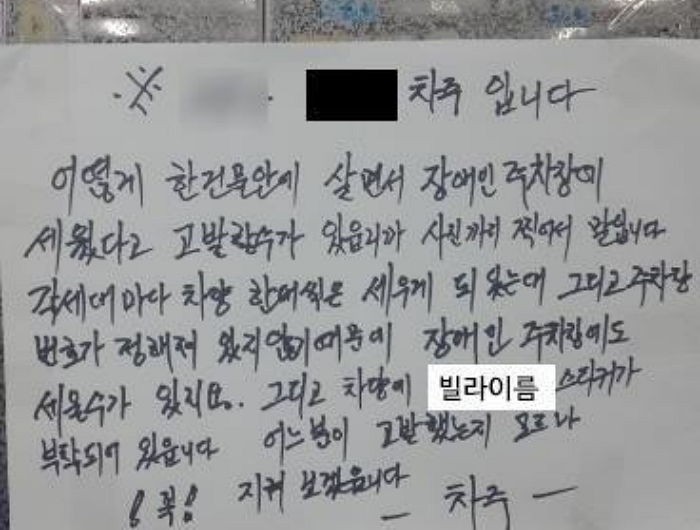 ※ 차주 입니다
어떻게 한건물안에 살면서 장애인 주차장에
세웠다고 고발할수가 있읍리까 사진까지 찍어서 말입니다
각세대마다 차량 한대씩은 세우게 되 있는데 그리고 주차란
번호가 정해져 있지않기때문에 장애인 주차장에도
세울수가 있지요. 그리고 차량에 빌라이름 스티커가
부착되어 있읍니다 어느분이 고발했는지 모르나
! 꼭! 지켜 보겠읍니다
- 차주 -